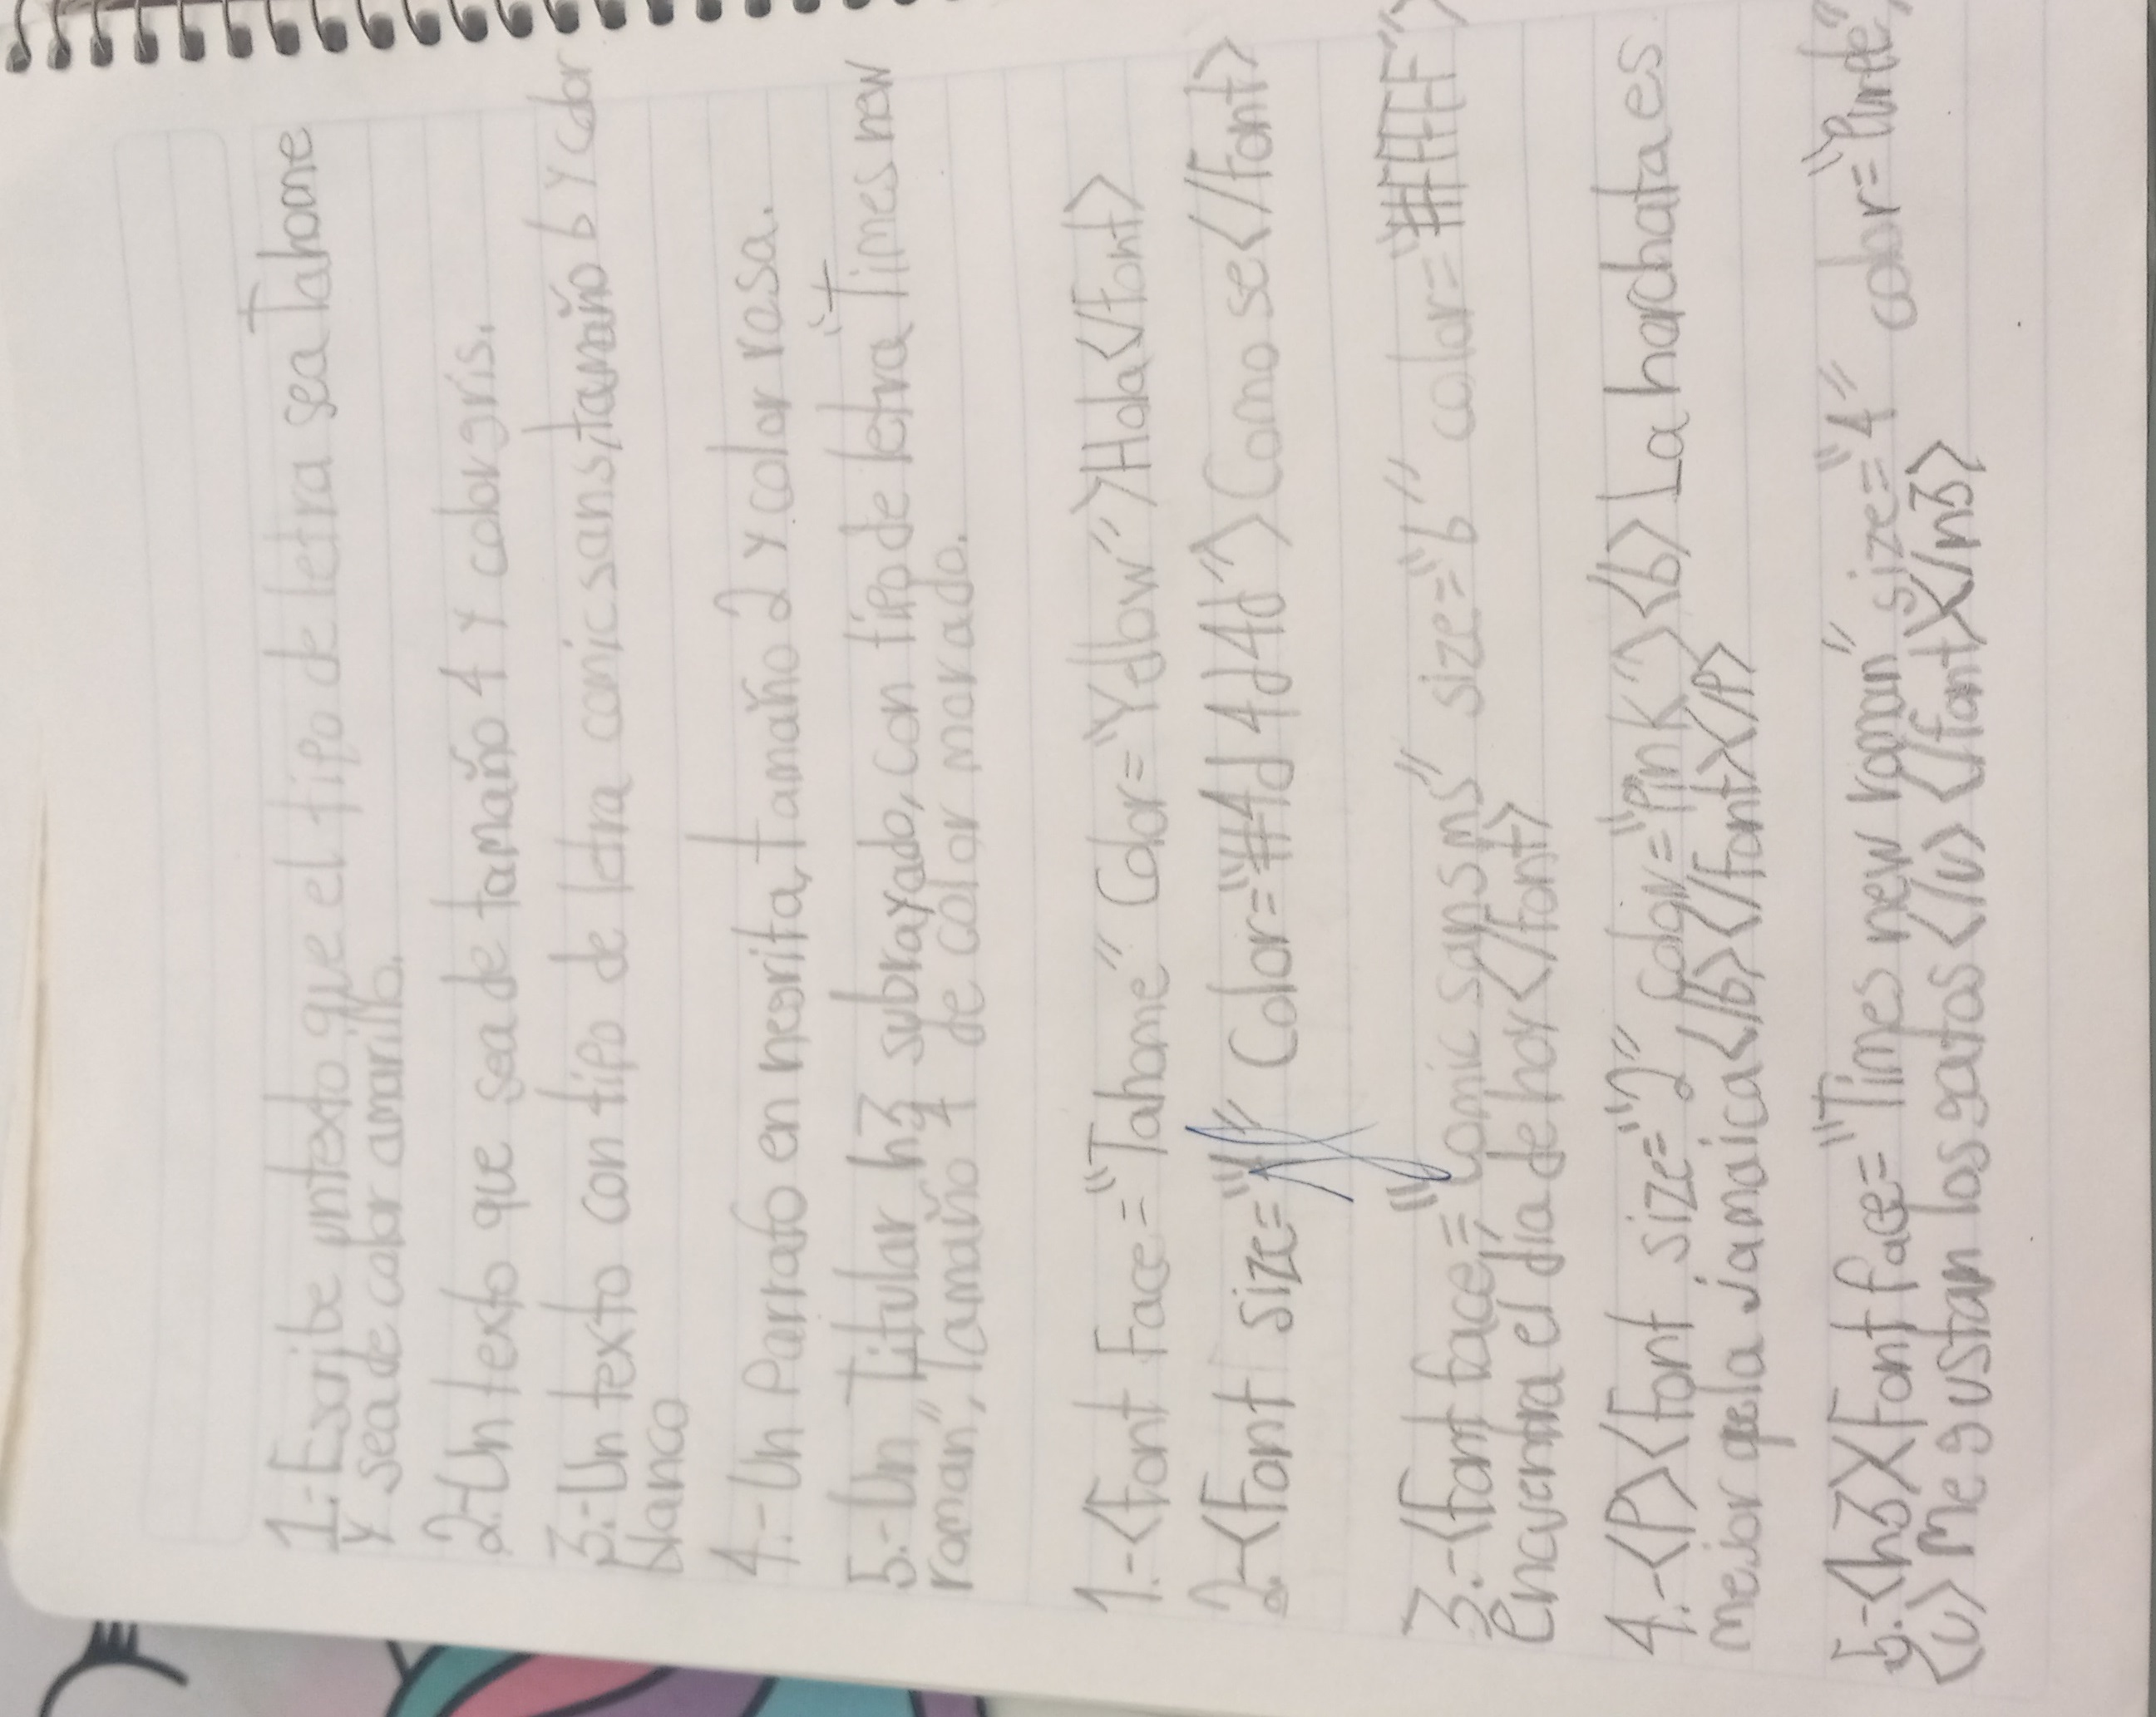 1.-Escribe un texto que el tipo de letra sea Tahome
y sea de color amarillo.
2.-Un texto que sea de tamaño 4 y color gris.
3.-Un texto con tipo de letra comic sans, tamaño 6 y color
blanco
4.-Un Parrafo en negrita, tamaño 2 y color rosa.
5.-Un "Titular h3 subrayado, con tipo de letra "Times new
roman", Tamaño 4 de color morado.
1.-<Font Face="Tahome" Color="Yellow">Hola</Font>
2.-<Font size="4" Color="#4d4d4d">Como se</Font>
3.-<Font face="Comic sans ms" size="6" color="#FFFFFF">
Encuentra el día de hoy</Font>
4.-<P><Font size="2", color="Pink"><b>La horchata es
mejor que la jamaica</b></Font></P>
5.-<h3><Font face="Times new roman" size="4" color="Purple">
<U>Me gustan los gatos</U></font></h3>